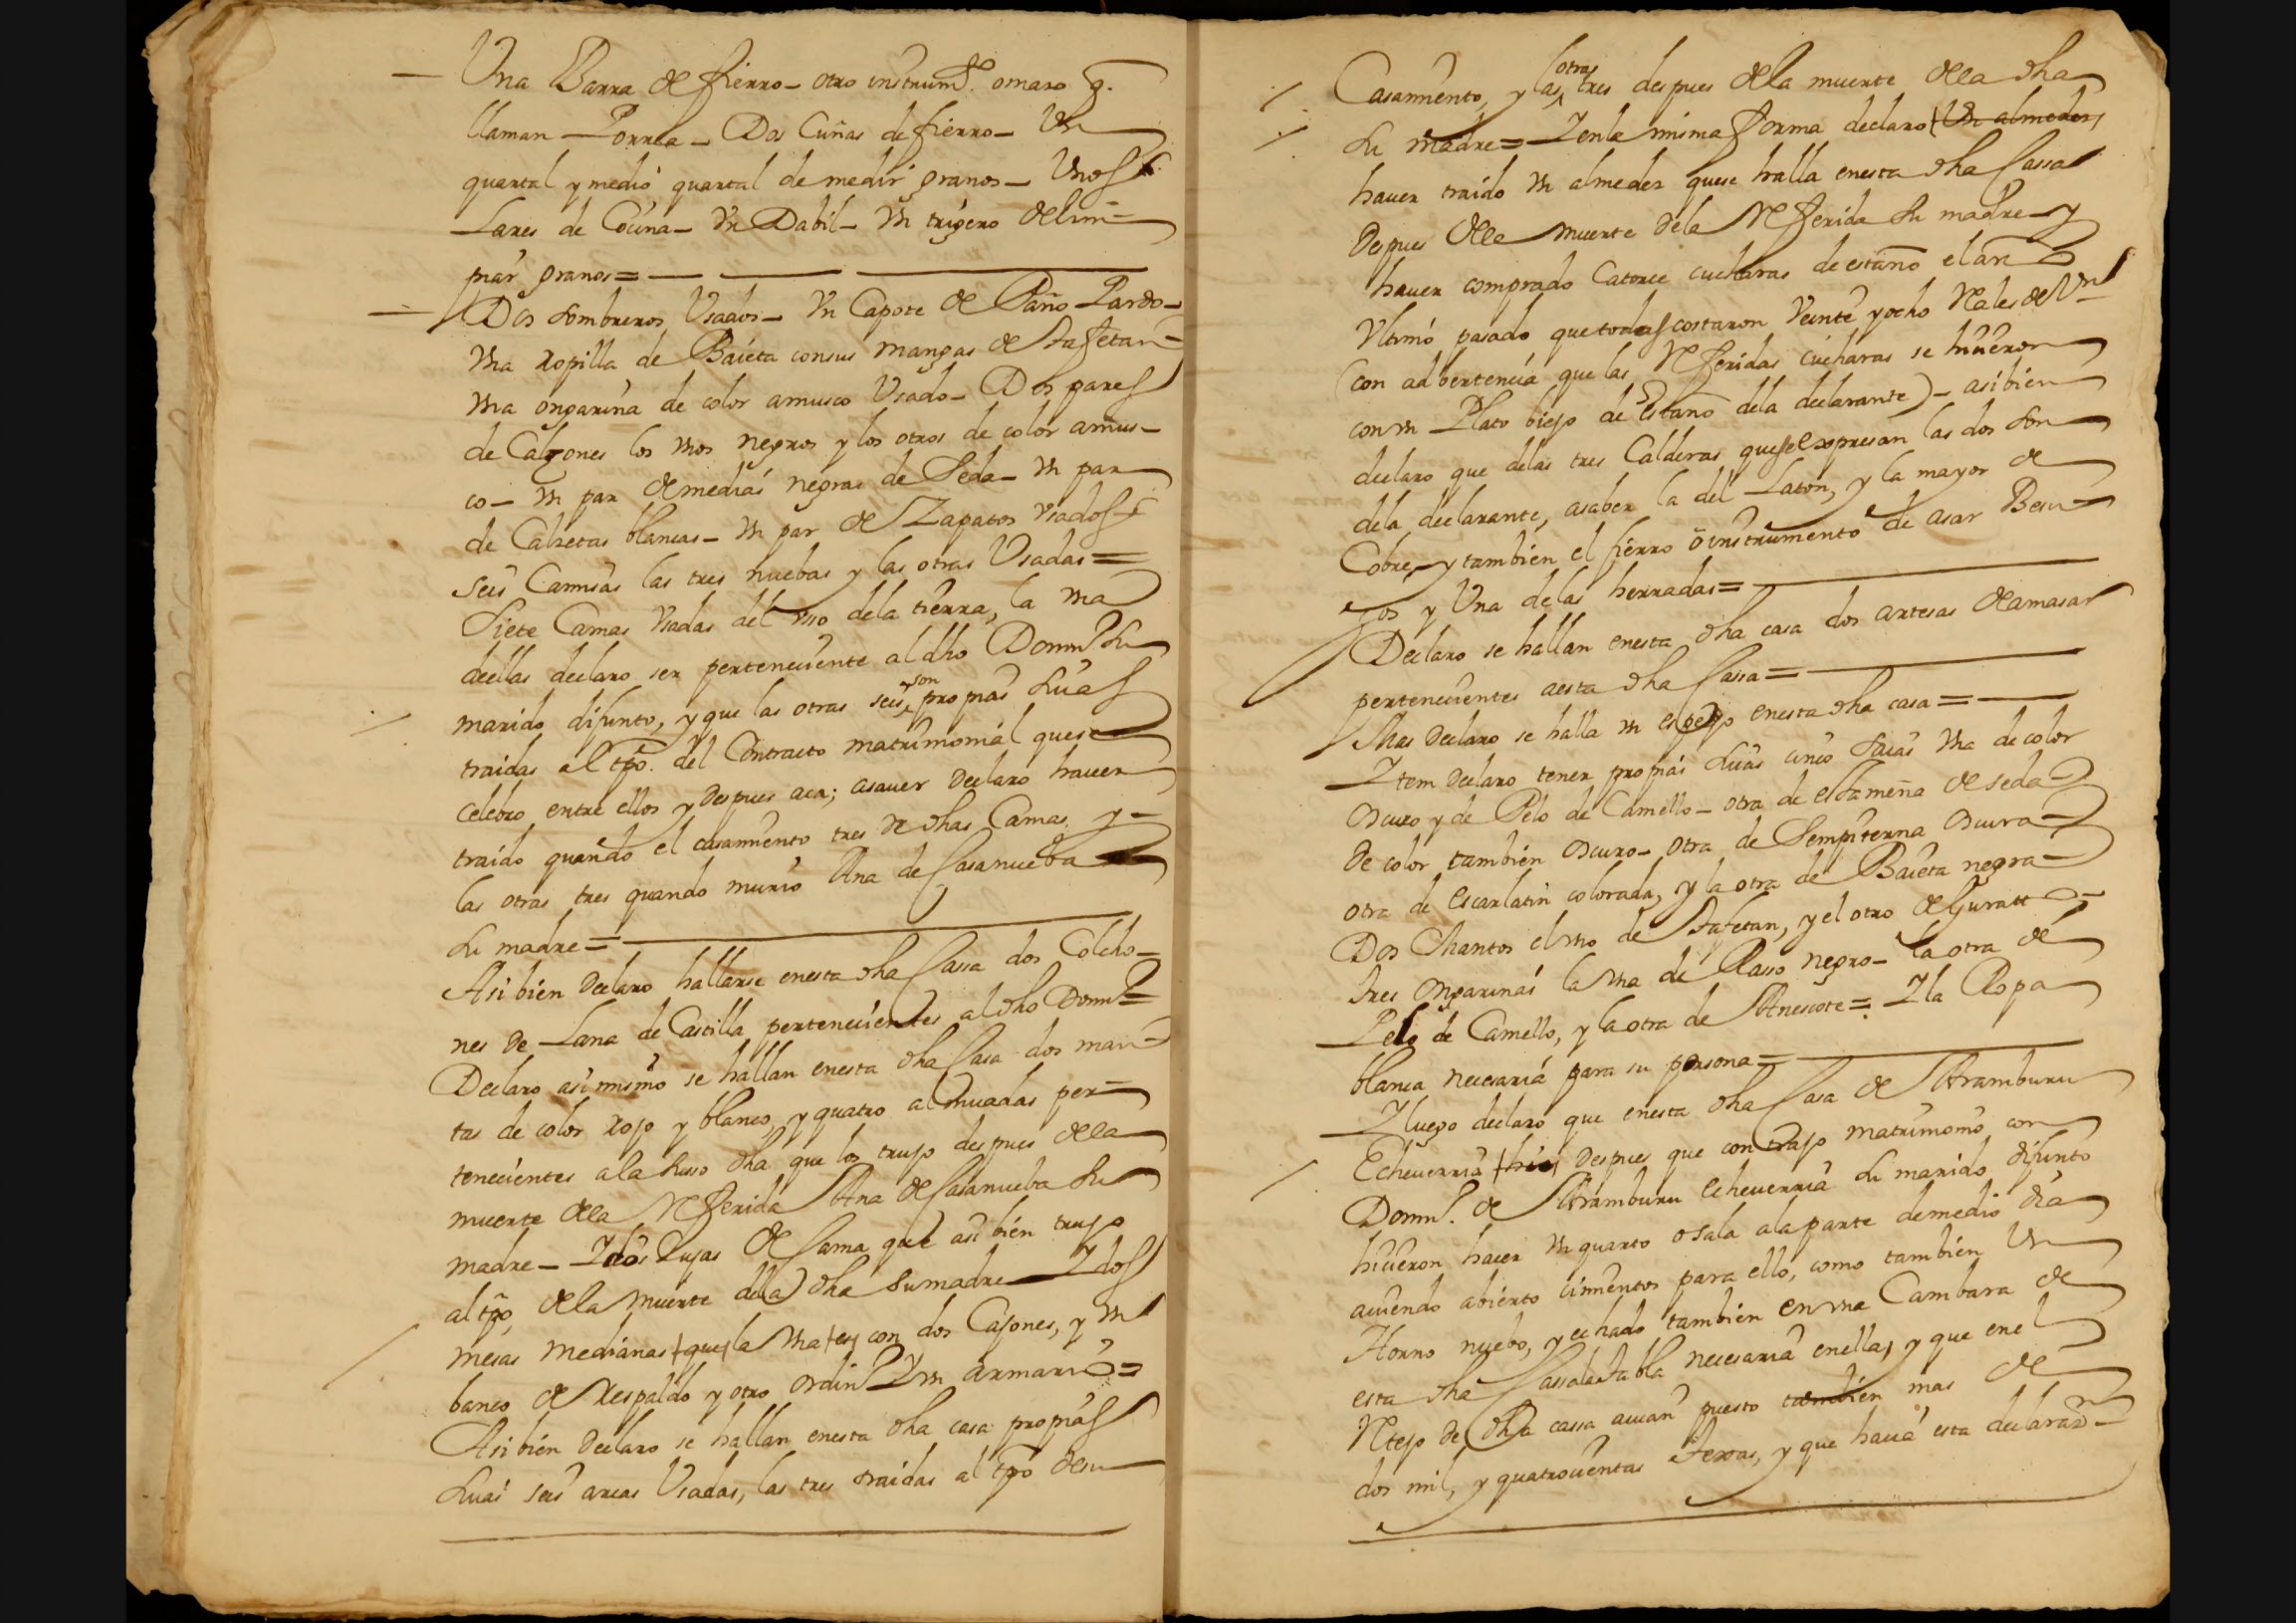 Una Barra de fierro - otro instrum.to o maço q.
llaman Porrea - Dos Cuñas de fierro - Un
quartal y medio quartal de medir granos - Unos
Lares de Cocina - Un Dabil - Un trigero de lim-
piar granos =
Dos sombreros Usados - Un Capote de Paño Pardo -
Una ropilla de Baieta con sus mangas de Tafetan -
Una ongarina de color amusco Usado - Dos pares
de Calzones los unos negros y los otros de color amus-
co - Un par de medias negras de Seda - Un par
de Calzetas blancas - Un par de Zapatos usados
seis Camisas las tres nuebas y las otras Usadas =
Siete Camas Usadas del uso de la tierra, la una
dellas declaro ser perteneciente al dho Domin.o su
marido difunto, y que las otras seis son propias suias
traidas al tpo. del Contracto matrimonial que se
celebro entre ellos y despues aca; asauer declaro hauer
traido quando el casamiento tres de dhas Camas y -
las otras tres quando murio Ana de Casanueba
su madre =
Asi bien declaro hallarse en esta dha Cassa dos Colcho-
nes de Lana de Castilla pertenecientes al dho Domin.o =
Declaro asi mismo se hallan en esta dha Casa dos man-
tas de color rojo y blanco, y quatro almuadas per-
tenecientes a la suso dha que los trujo despues de la
muerte de la Referida Ana de Casanueba su
madre - Y dos Lujas de Cama que asi bien trujo
al tpo, de la muerte della dha su madre - Y dos
mesas medianas que la una es con dos Cajones, y un
banco de Respaldo y otro ordin.o Y un armario =
Asi bien declaro se hallan en esta dha casa propias
suias seis arcas Usadas, las tres traidas al tpo de su
Casamiento, y las otras tres despues de la muerte de la dha
su madre = Y en la misma forma declaro Un almedez
hauer traido un almedez que se halla en esta dha Cassa
despues de la muerte de la Referida su madre - y
hauer comprado Catorce cucharas de estaño el año
Ultimo pasado que todas costaron Veinte y ocho Rales de Vn
(con adbertencia que las Referidas cucharas se hicieron
con un Plato biejo de Estaño de la declarante) - asi bien
declaro que delas tres Calderas que se expresan las dos son
de la declarante, asaber la del Laton, y la mayor de
Cobre, y tambien el fierro o instrumento de asar Besu-
gos y Una de las herradas =
Declaro se hallan en esta dha casa dos artesas de amasar
pertenecientes a esta dha Cassa =
Mas declaro se halla un espejo en esta dha casa =
Ytem declaro tener propias suias cinco saias una de color
oscuro y de Pelo de Camello - otra de estameña de seda
de color tambien oscuro - otra de Sempiterna oscura -
otra de Escarlatin colorada, y la otra de Baieta negra -
Dos Mantos el uno de Tafetan, y el otro de Guratto -
Tres Ongarinas la una de Rasso negro - la otra de
Pelo de Camello, y la otra de Anescote = Y la Ropa
blanca necesaria para su persona =
Y luego declaro que en esta dha Casa de Aramburu
Echeuerria hici despues que contrajo matrimonio con
Domin.o de Aramburu Echeuerria su marido difunto
hicieron hacer un quarto o sala a la parte de medio dia
auiendo abierto cimientos para ello, como tambien Un
Horno nuebo, y echado tambien en una Cambara de
esta dha Cassa la tabla necesaria en ella, y que en el
Retejo de dha cassa auian puesto tambien mas de
dos mil, y quatrocientas Texas, y que hauia esta declaran.te